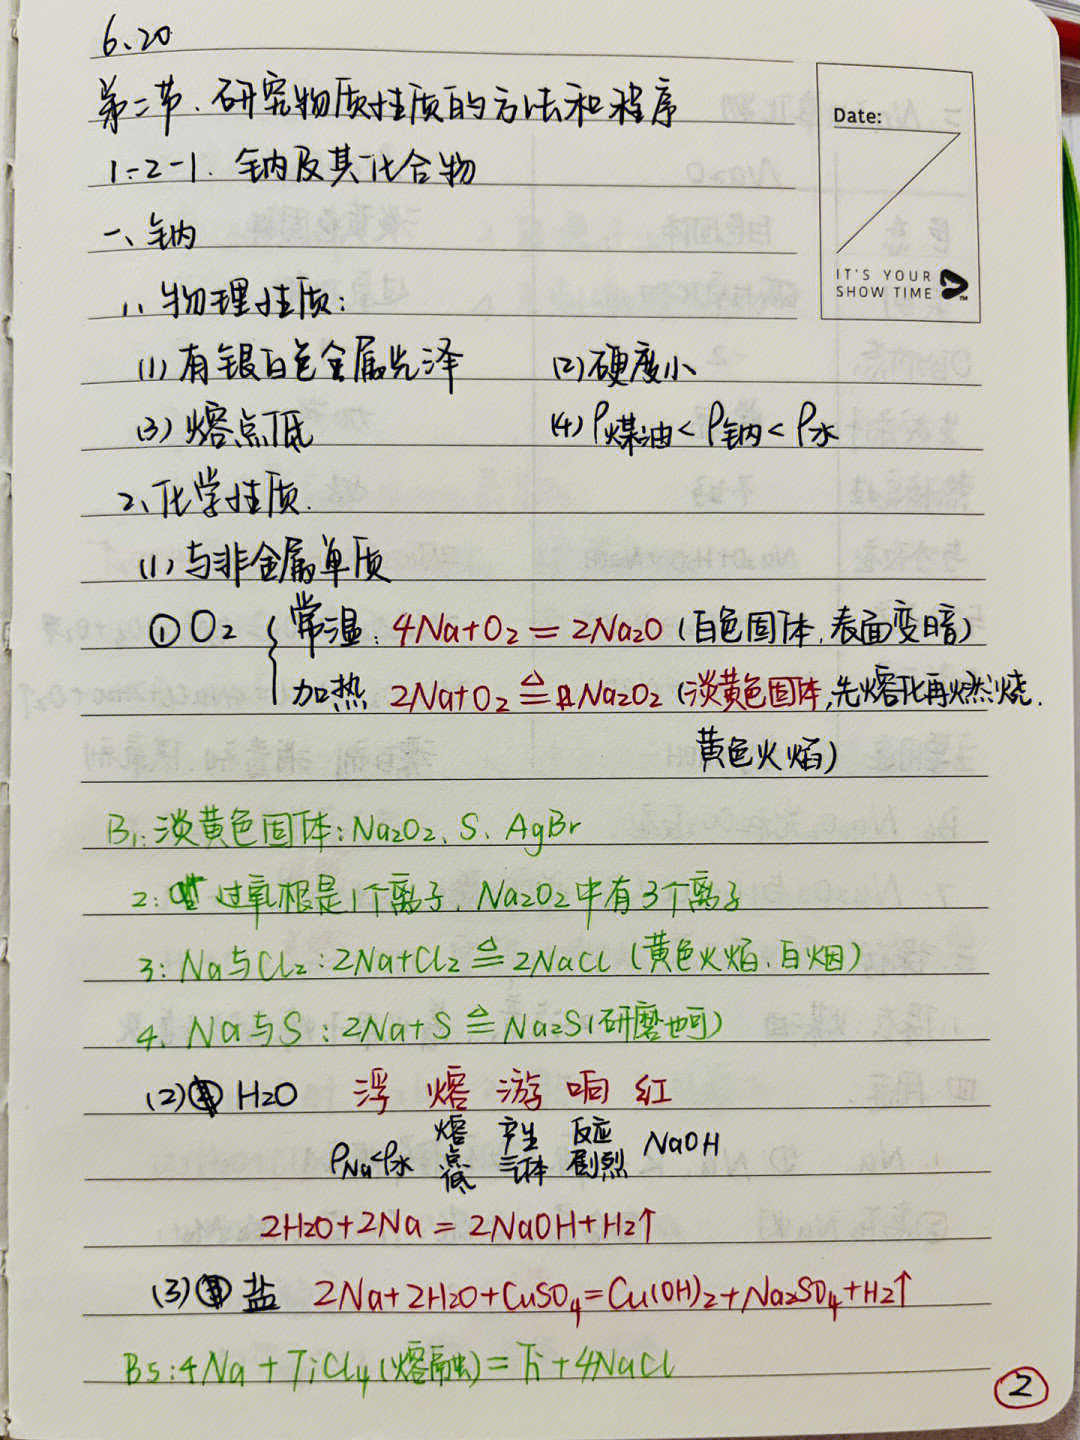 6.20
Date:
第二节.研究物质性质的方法和程序
1-2-1.钠及其化合物
一、钠
IT'S YOUR
SHOW TIME
1、物理性质:
(1)有银白色金属光泽 (2)硬度小
(3)熔点低 (4)ρ煤油<ρ钠<ρ水
2、化学性质.
(1)与非金属单质
①O₂ { 常温: 4Na+O₂=2Na₂O (白色固体,表面变暗)
加热 2Na+O₂≜Na₂O₂ (淡黄色固体,先熔化再燃烧.
黄色火焰)
B1:淡黄色固体:Na₂O₂、S、AgBr
2: 过氧根是1个离子,Na₂O₂中有3个离子
3:Na与Cl₂:2Na+Cl₂≜2NaCl (黄色火焰.白烟)
4.Na与S:2Na+S≜Na₂S(研磨也可)
(2)与H₂O 浮 熔 游 响 红
ρNa<ρ水 熔点低 产生气体 反应剧烈 NaOH
2H₂O+2Na=2NaOH+H₂↑
(3)与盐 2Na+2H₂O+CuSO₄=Cu(OH)₂+Na₂SO₄+H₂↑
B5:4Na+TiCl₄(熔融)=Ti+4NaCl
2